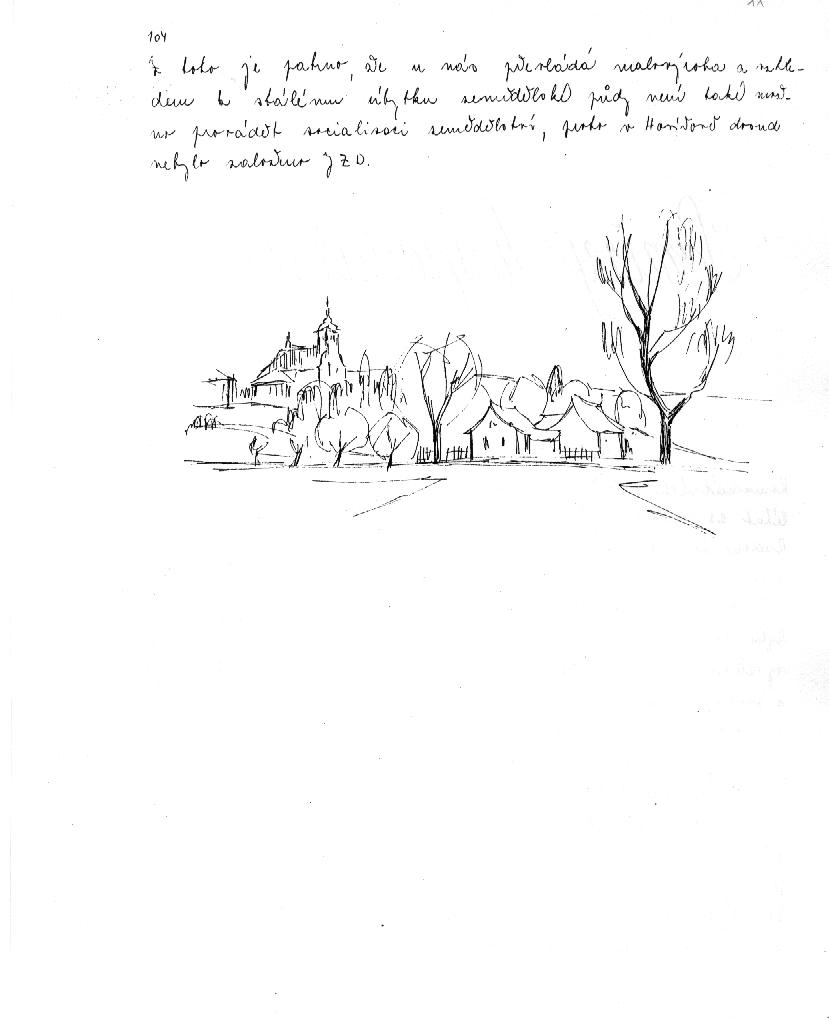 104
Z toho je patrno, že u nás převládá malovýroba a vzhle-
dem k stálému úbytku zemědělské půdy není také mož-
no provádět socialisaci zemědělství, proto v Havířově dosud
nebylo založeno JZD.